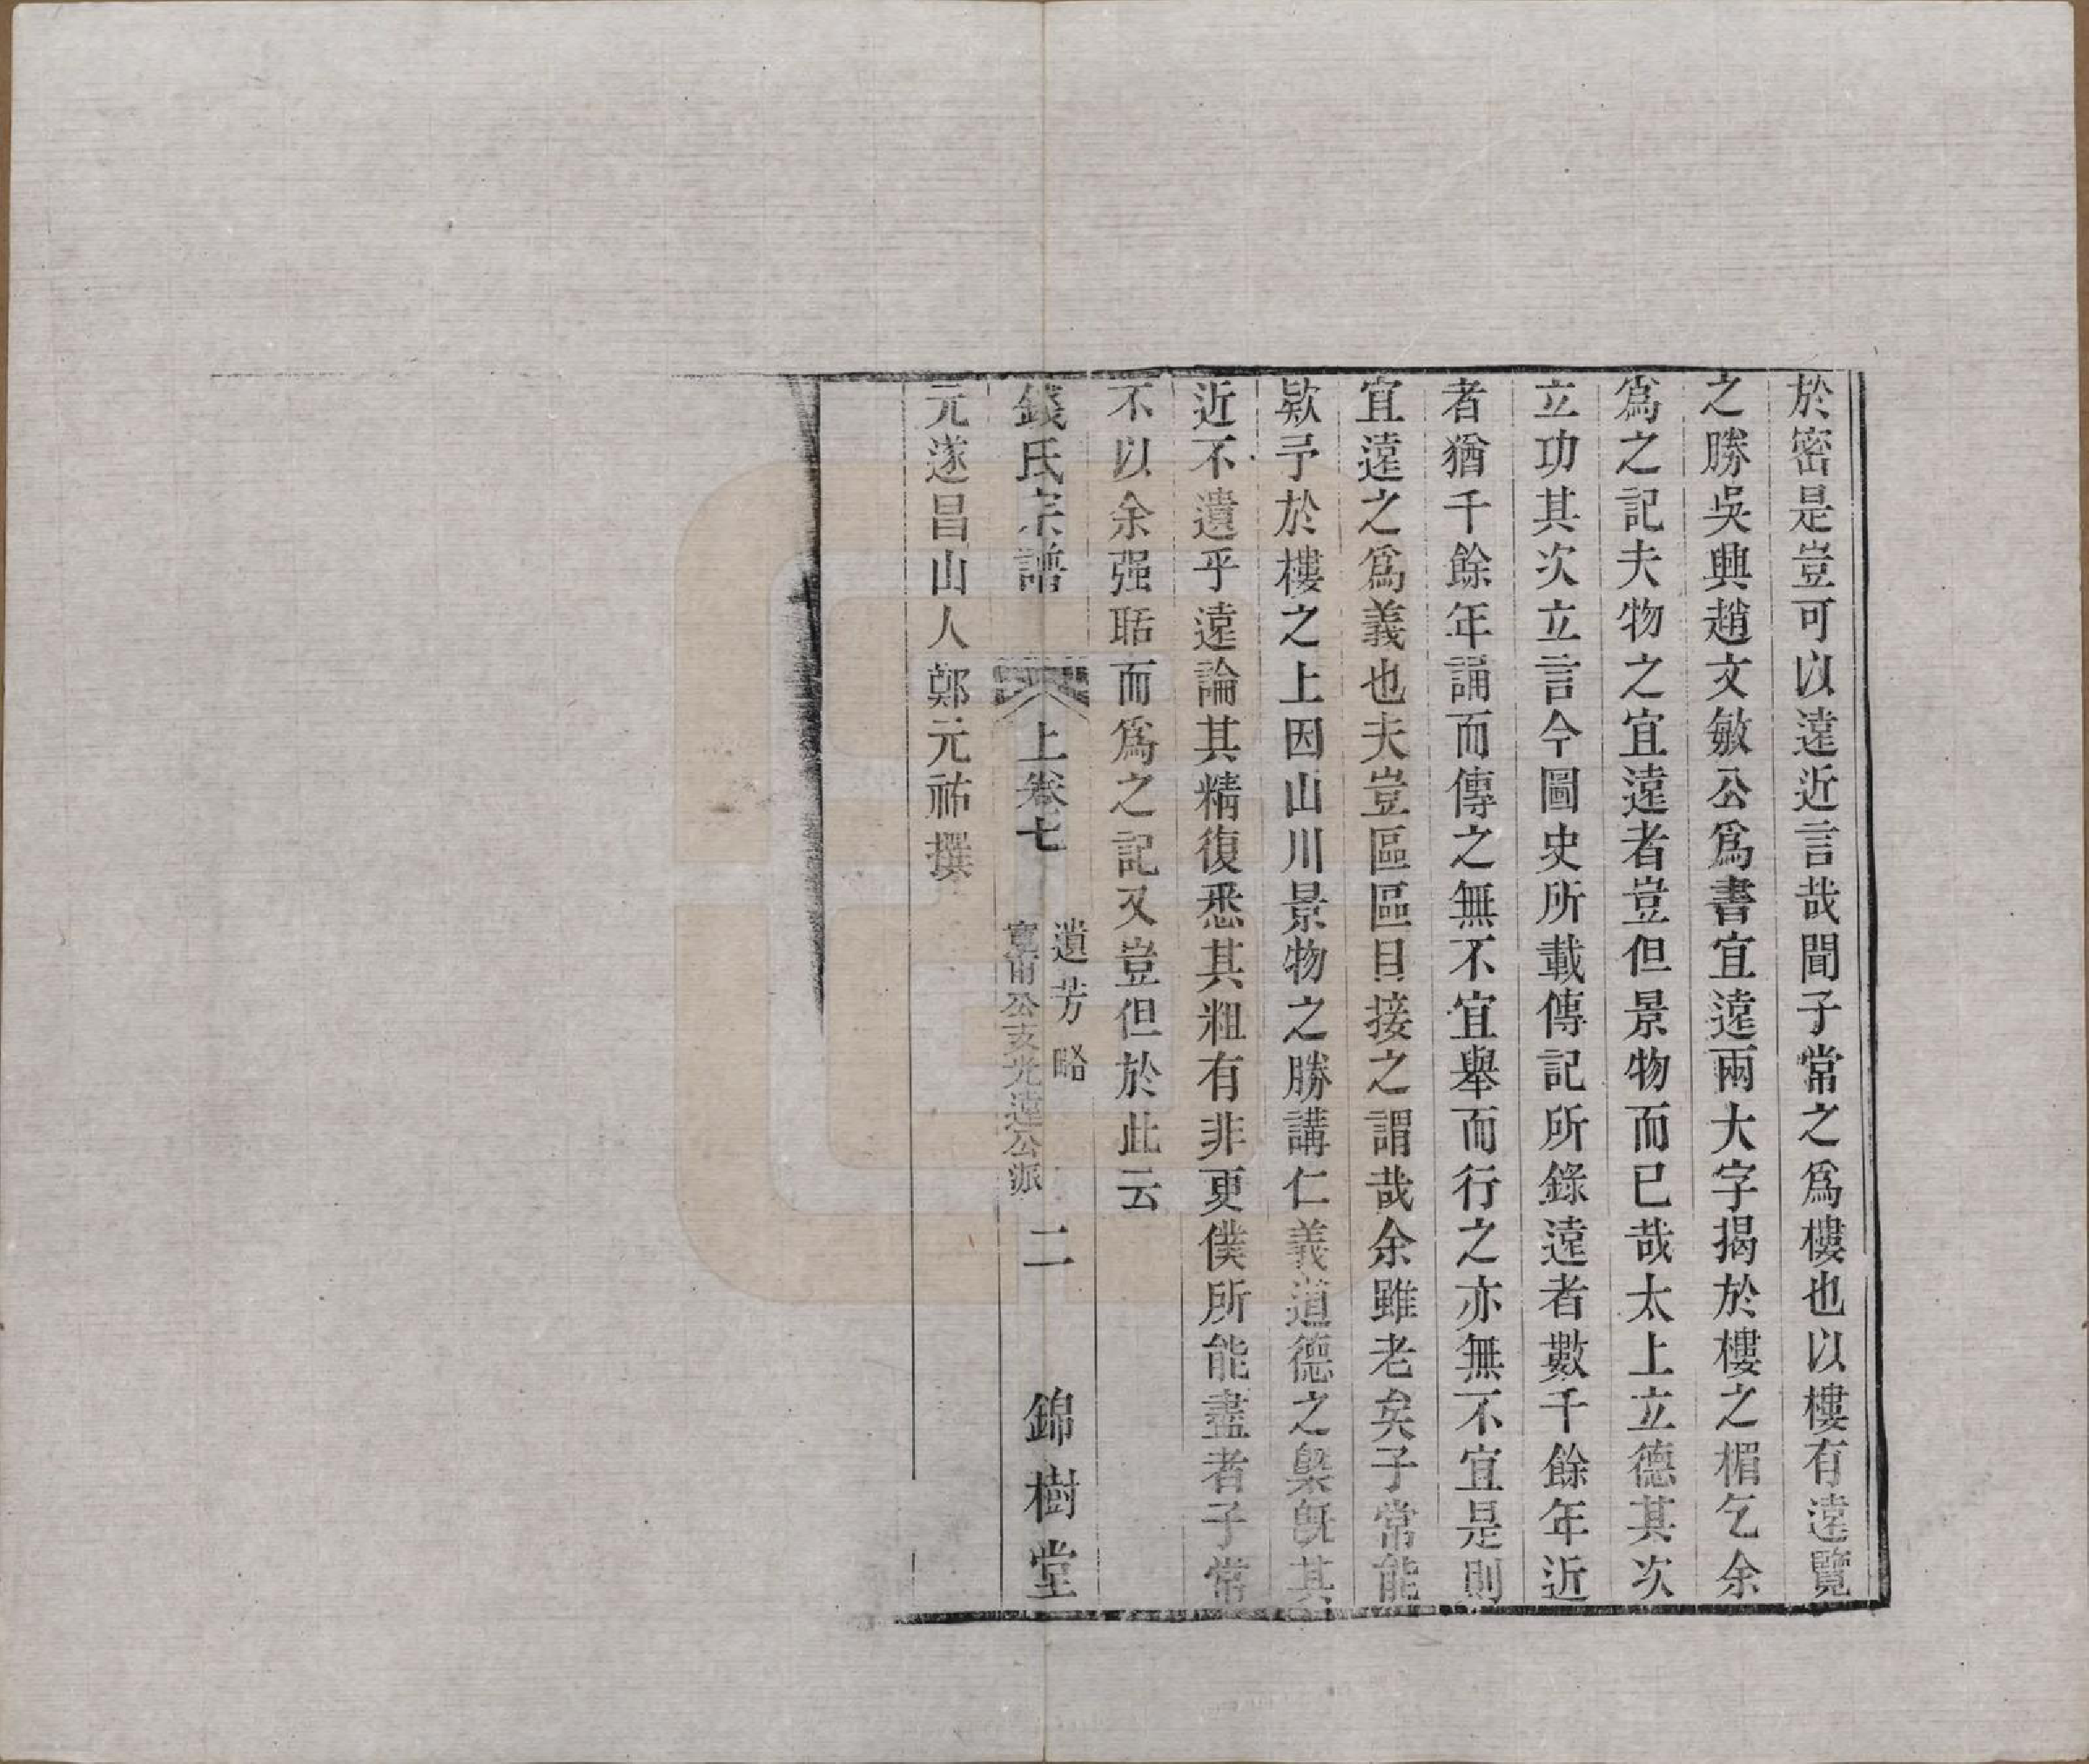 於密是豈可以遠近言哉聞子常之爲樓也以樓有遠覽
之勝吳興趙文敏公爲書宜遠兩大字揭於樓之楣乞余
爲之記夫物之宜遠者豈但景物而已哉太上立德其次
立功其次立言今圖史所載傳記所錄遠者數千餘年近
者猶千餘年誦而傳之無不宜舉而行之亦無不宜是則
宜遠之爲義也夫豈區區目接之謂哉余雖老矣子常能
欵予於樓之上因山川景物之勝講仁義道德之槩旣其
近不遺乎遠論其精復悉其粗有非更僕所能盡者子常
不以余强聒而爲之記又豈但於此云
錢氏宗譜
上卷七
遺芳略
寬甫公支光遠公派
二
錦樹堂
元遂昌山人鄭元祐撰